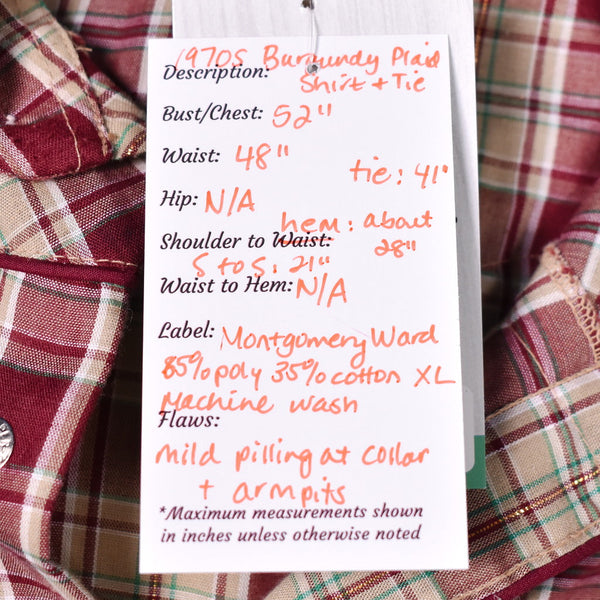 1970s Burgundy Plaid
Description: Shirt + Tie
Bust/Chest: 52"
Waist: 48"
tie: 41"
Hip: N/A
hem: about
Shoulder to Waist: 28"
S to S: 21"
Waist to Hem: N/A
Label: Montgomery Ward
65% poly 35% cotton XL
Machine wash
Flaws:
mild pilling at collar
+ armpits
*Maximum measurements shown
in inches unless otherwise noted